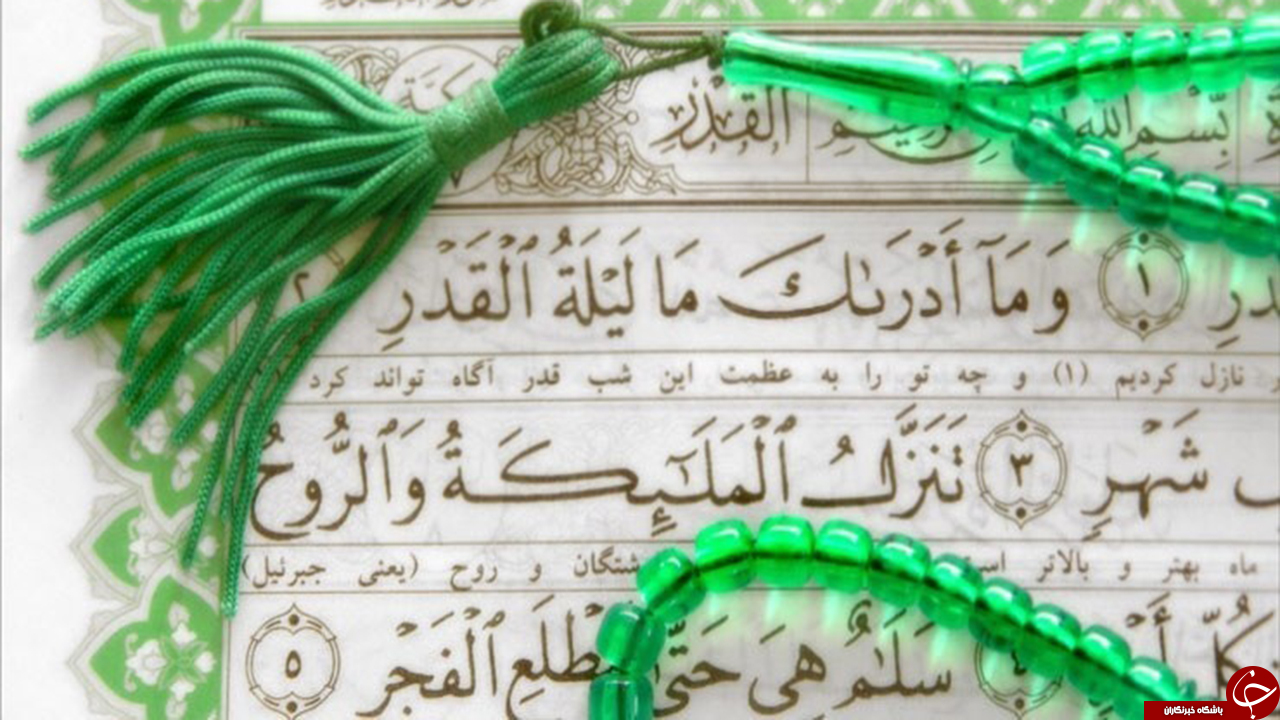 القَدْرِ بِسْمِ اللَّهِ
دْرِ ١ وَ مَآ أَدْرَىٰكَ مَا لَيْلَةُ ٱلْقَدْرِ ٢
نازل کردیم (۱) و چه تو را به عظمت این شب قدر آگاه تواند کرد
شَهْرٍ ٣ تَنَزَّلُ ٱلْمَلَـٰٓئِكَةُ وَٱلرُّوحُ
ماه بهتر و بالاتر است شتگان و روح (یعنی جبرئیل)
كُلِّ أَ ٤ سَلَـٰمٌ هِىَ حَتَّىٰ مَطْلَعِ ٱلْفَجْرِ ٥
باشگاه خبرنگاران